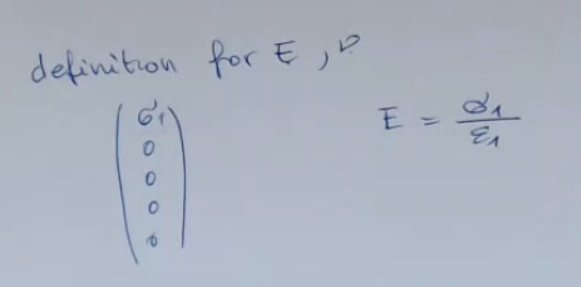 definition for E, ν
σ1
0
0
0
0
E = σ1 / ε1